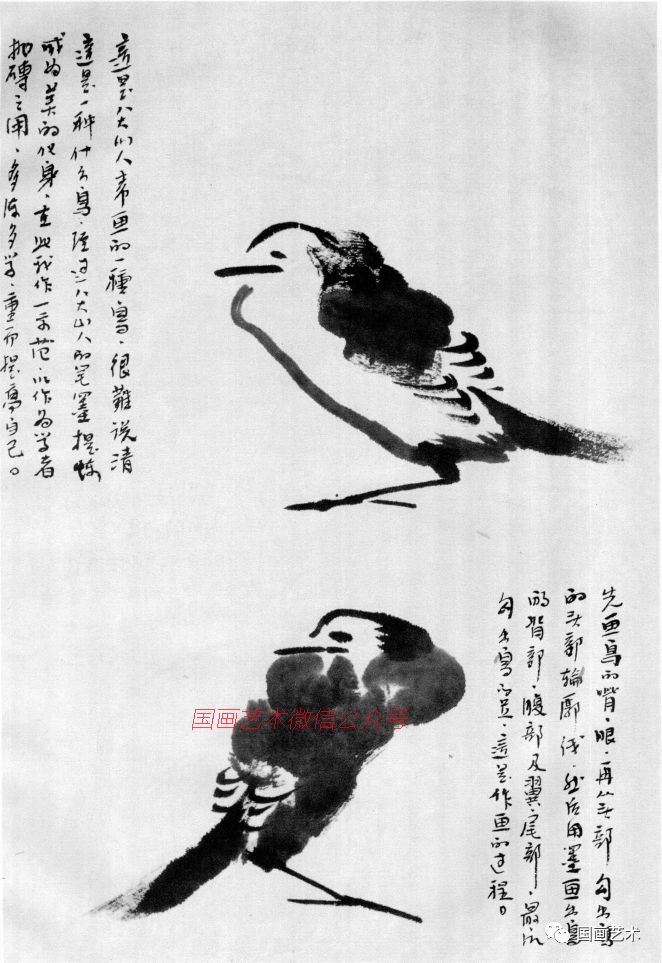 這是八大山人常画的一種鳥，很難说清
這是一种什么鳥，經过八大山人的笔墨提煉
成为美的化身，在此我作一示范，以作为学者
抛磚之用，多读多学，而提高自己。
国画艺术微信公众号
先画鳥的嘴、眼，再从头部勾出鳥
的头部輪廓线，然后用墨画出鳥
的背部，腹部及翼、尾部，最后
勾出鳥的足，這是作画的过程。
国画艺术